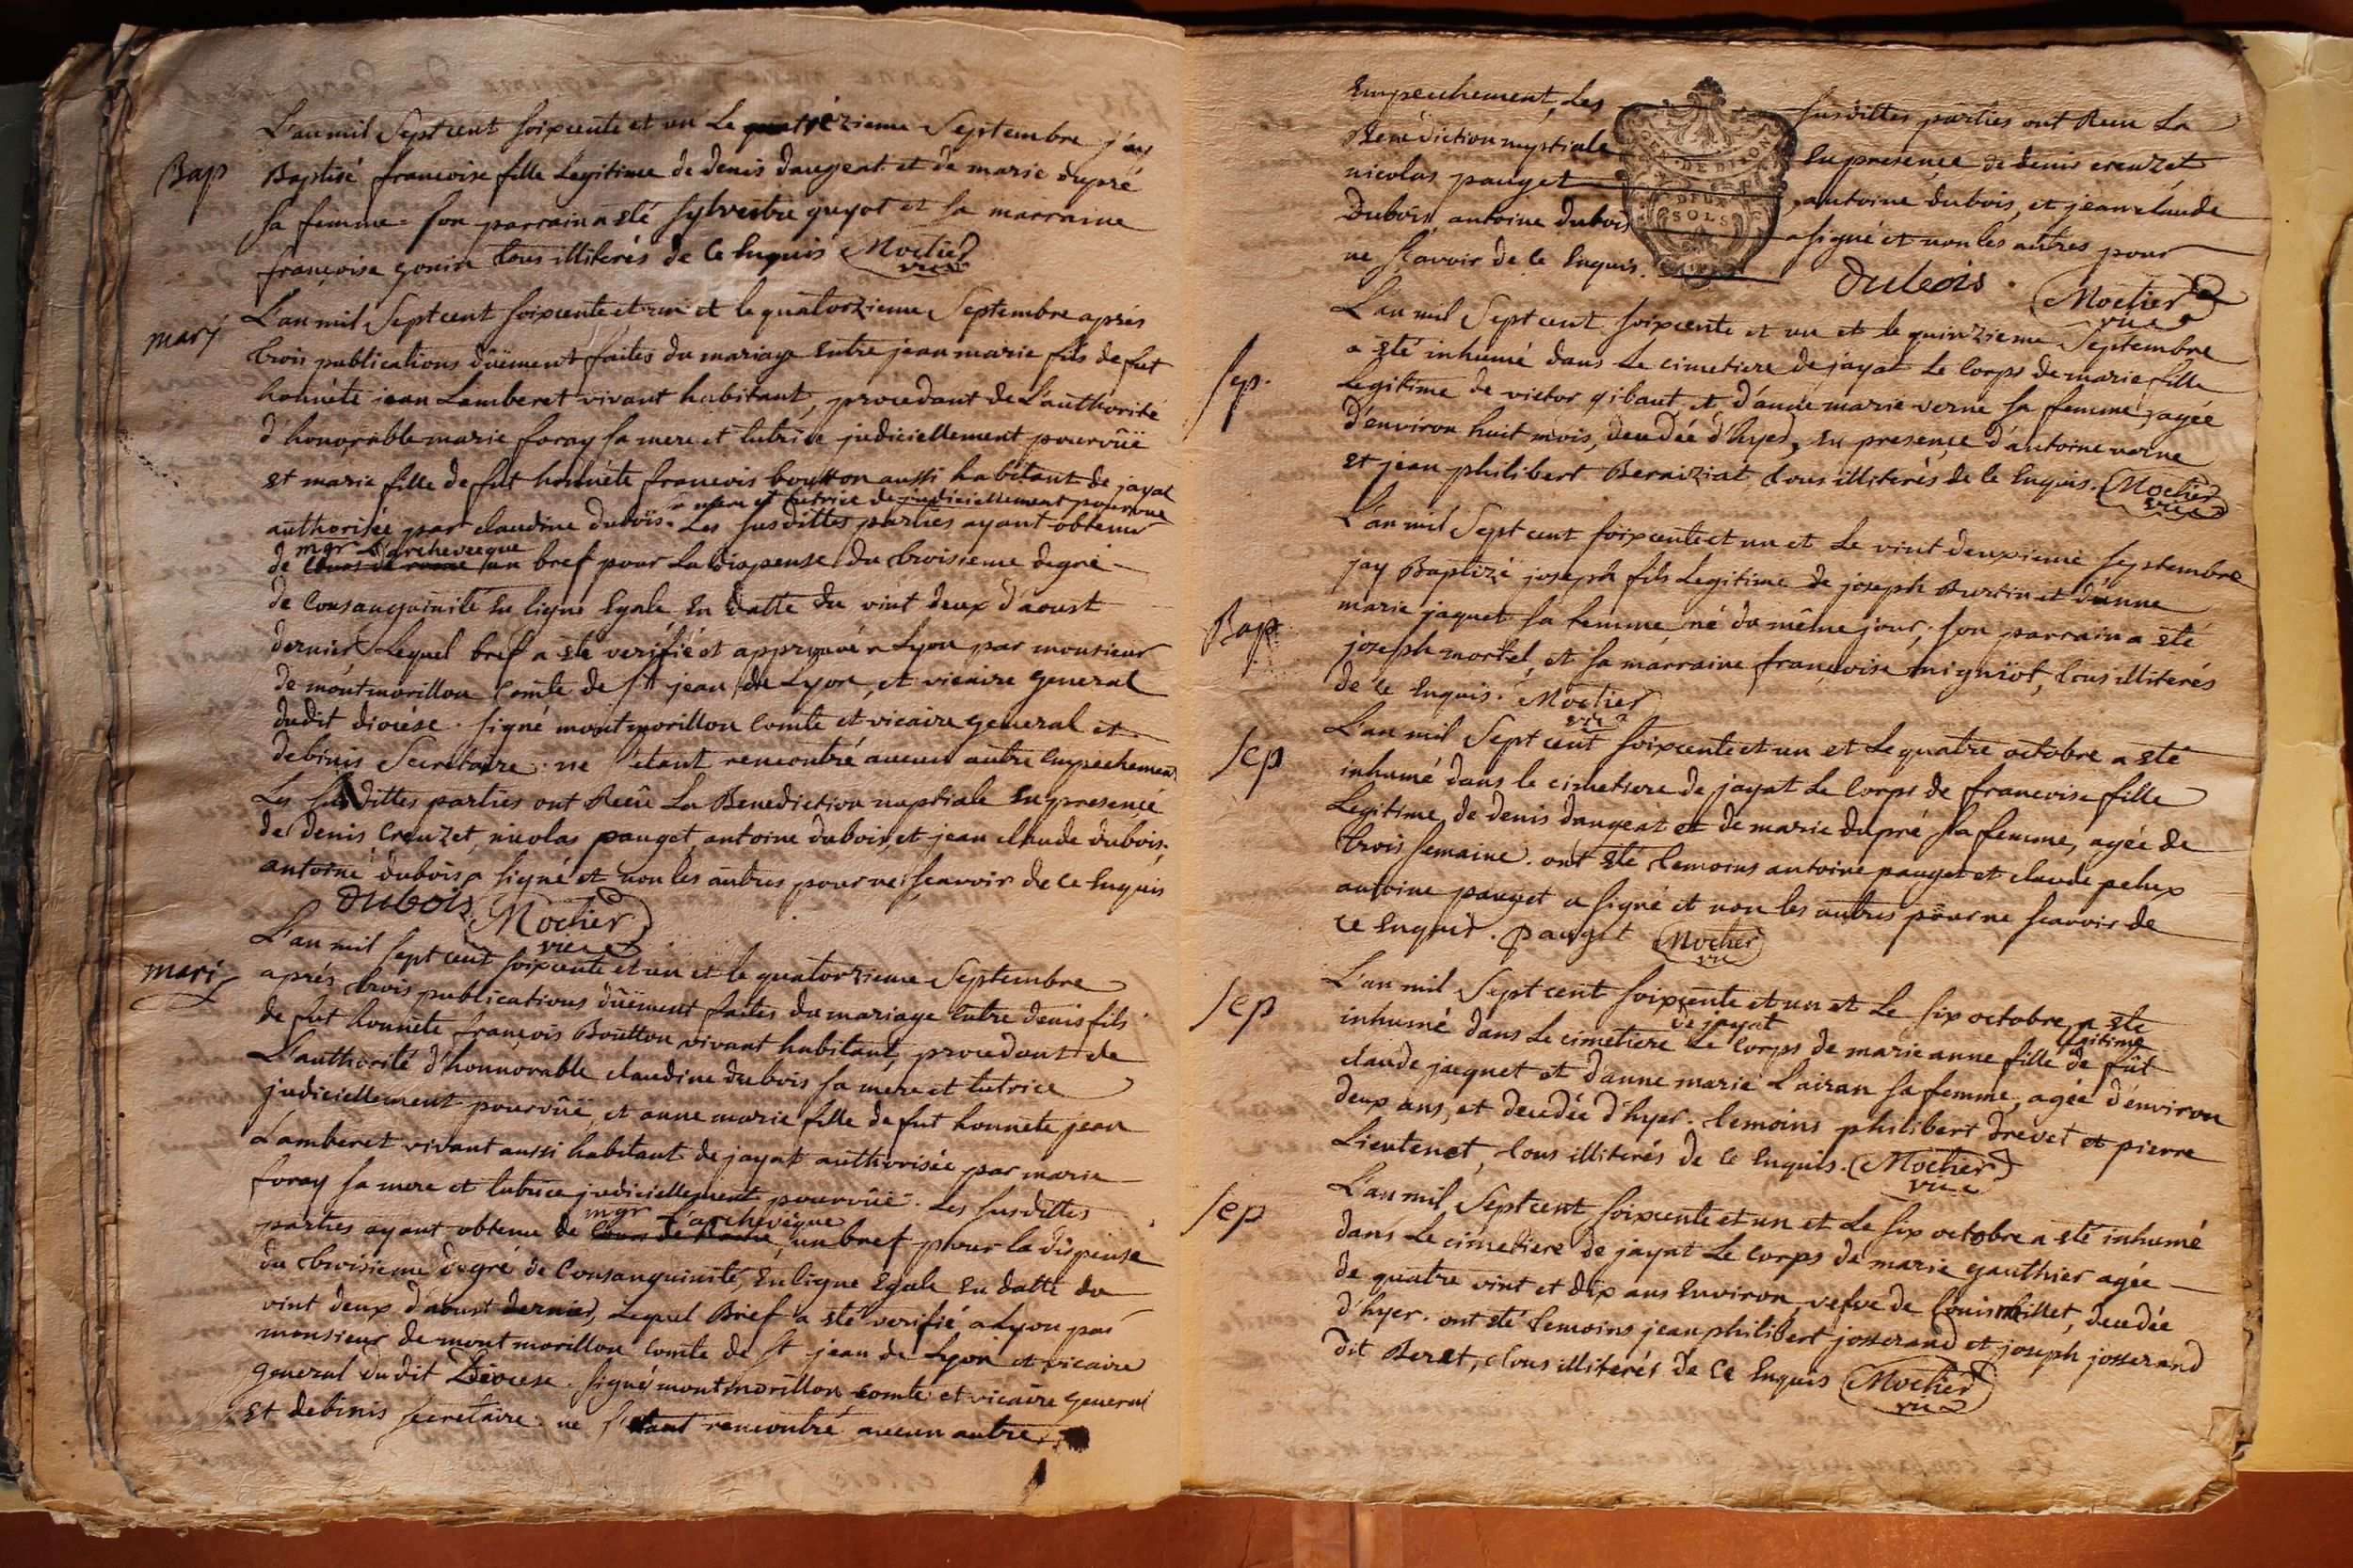 L'an mil Sept cent soixcente et un Le quatrézieme Septembre j'ay
Bap
Baptisé francoise fille Legitime de denis daugeat et de marie dupré
sa femme = son parrain a eté sylvestre guyot et sa marraine
françoise gonin tous illiterés de ce Enquis Mochier
vic
L'an mil Sept cent soixcente et un et le quatorzieme Septembre aprés
mari
trois publications dûëment faites du mariage Entre jean marie fils de fut
honnéte jean Lamberet vivant habitant, procedant de L'authorité
d'honnorable marie foray sa mere et tutrice judiciellement pourvûë
et marie fille de fut honnéte francois boutton aussi habitant de jayat
a mere et tutrice de judiciellement pourvue
authorisée par claudine dubois. Les susdittes parties ayant obtenu
mgr L'archevecque
de Cour de rome un bref pour La dispense du troisieme degré
de Consanguinité En ligne Egale En datte du vint deux d'aoust
dernier Lequel bref a eté verifié et approuvé a Lyon par monsieur
de montmorillon Comte de st jean de Lyon, et vicaire general
dudit diocése. signé montmorillon Comte et vicaire general et
debinis Secretaire. ne s'etant rencontré aucun autre Empechement
Les susdittes parties ont Reçû La Benediction nuptiale En presence
de denis Creuzet, nicolas pauget, antoine dubois, et jean claude dubois,
antoine dubois a signé et non les autres pour ne scavoir de ce Enquis
dubois Mochier
vic
L'an mil sept cent soixcente et un et le quatorzieme Septembre
mari
aprés trois publications dûëment faites du mariage Entre denis fils
de fut honnéte françois Boutton vivant habitant, procedant de
L'authorité d'honnorable claudine dubois sa mere et tutrice
judiciellement pourvûë, et anne marie fille de fut honnéte jean
Lamberet vivant aussi habitant de jayat authorisée par marie
foray sa mere et tutrice judiciellement pourvûë. Les susdittes
mgr L'archevêque
parties ayant obtenu de Cour de Rome, un bref pour la dispense
du troisieme degré de Consanguinité, En ligne Egale En datte du
vint deux d'aoust dernier, Lequel Bref a eté verifié a Lyon par
monsieur de montmorillon Comte de st jean de Lyon et vicaire
general dudit Diocese. signé montmorillon comte et vicaire general
et debinis secretaire. ne s'etant rencontré aucun autre
Empechement, Les susdittes parties ont Recu La
Benediction nuptiale En presence de denis creuzet
nicolas pauget, antoine dubois, et jean claude
Dubois, antoine dubois a signé et non les autres pour
ne scavoir de ce Enquis.
GEN. DE DIJON
DEUX
SOLS
dubois. Mochier
vic
L'an mil Sept cent soixcente et un et le quinzieme Septembre
sep.
a eté inhumé dans Le cimetiere de jayat Le Corps de marie fille
Legitime de victor gibaut et d'anne marie verne sa femme, agée
d'environ huit mois, decedée d'hyer, En presence d'antoine varne
et jean philibert Beraiziat tous illiterés de ce Enquis. Mochier
vic
L'an mil Sept cent soixcente et un et Le vint deuxieme Septembre
Bap
jay Baptizé joseph fils Legitime de joseph Burtin et d'anne
marie jaquet sa femme né du même jour, son parrain a eté
joseph mortel, et sa marraine françoise migniot, tous illiterés
de ce Enquis. Mochier
vic
L'an mil Sept cent soixcente et un et Le quatre octobre a eté
sep
inhumé dans le cimetiere de jayat Le Corps de francoise fille
Legitime de denis daugeat et de marie dupré sa femme, agée de
trois semaine. ont eté temoins antoine pauget et claude pelux
antoine pauget a signé et non les autres pour ne scavoir de
ce Enquis. pauget Mochier
vic
L'an mil Sept cent soixcente et un et Le six octobre a eté
sep
de jayat legitime
inhumé dans Le cimetiere Le Corps de marie anne fille de fût
claude jaquet et d'anne marie Lairan sa femme, agée d'environ
deux ans, et decedée d'hyer. temoins philibert drevet et pierre
Lieutenet, tous illiterés de ce Enquis. Mochier
vic
L'an mil Sept cent soixcente et un et Le six octobre a eté inhumé
sep
dans Le cimetiere de jayat Le Corps de marie gauthier agée
de quatre vint et dix ans Environ, vefve de Louis millet, decedée
d'hyer. ont eté temoins jean philibert josserand et joseph josserand
dit Beret, tous illiterés de ce Enquis Mochier
vic